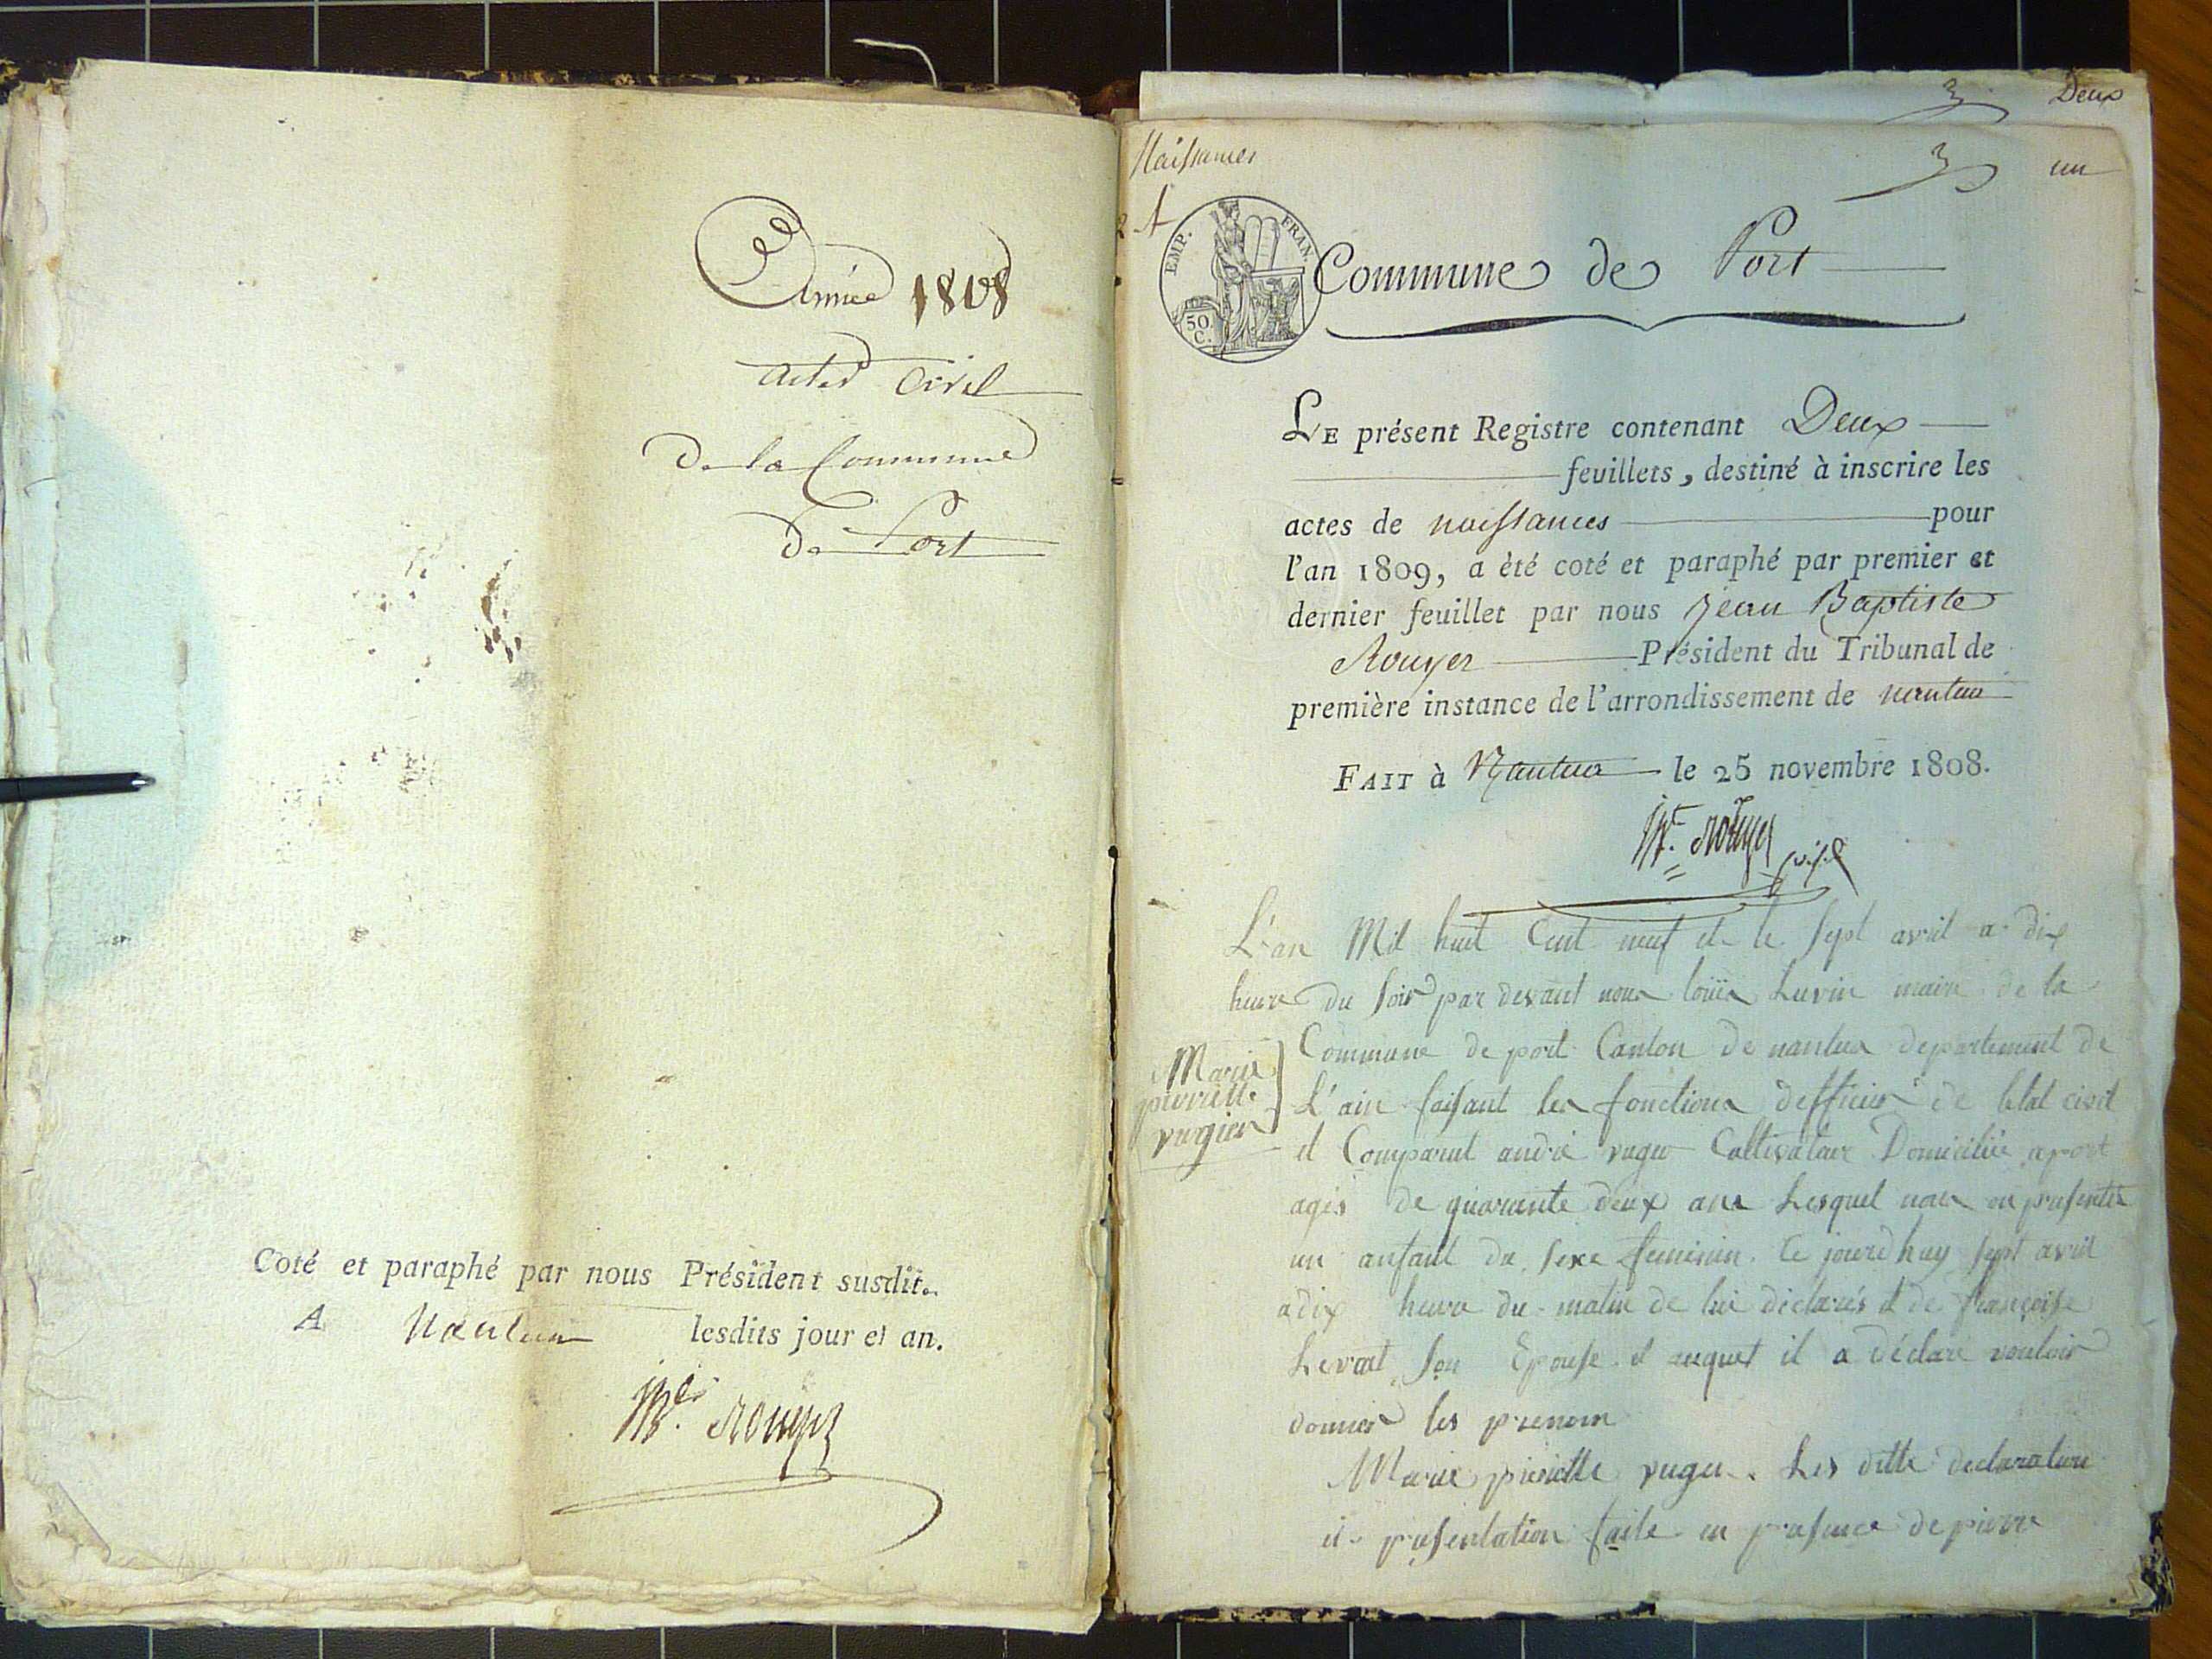 Année 1808
actes Civil
De la Commune
De Port
Coté et paraphé par nous Président susdit.
A Nantua lesdits jour et an.
Rouyer
Deux
Naissances
un
EMP. FRAN.
50 C.
Commune de Port
LE présent Registre contenant Deux
feuillets, destiné à inscrire les
actes de naissances pour
l'an 1809, a èté coté et paraphé par premier et
dernier feuillet par nous Jean Baptiste
Rouyer Président du Tribunal de
première instance de l'arrondissement de nantua
FAIT à Nantua le 25 novembre 1808.
Rouyer
L'an Mil huit Cent neuf et le sept avril a dix
heure du soir par devant nous louis Luvin maire de la
Commune de port Canton de nantua departement de
L'ain faisant les fonctions defficier de letat civil
Marie
pierrette
vugier
et Comparut andré vuger Cultivateur Domicilié aport
agés de quarante deux ans Lesquel nous on presentés
un anfant du sexe feminin. Ce jourdhuy sept avril
adix heure du matin de lui déclarés et de françoise
Levrat son Epouse et auquel il a déclaré vouloir
donner les prenom
Marie pierrette vuger. Les ditte declaration
et presentation faite en presence de pierre